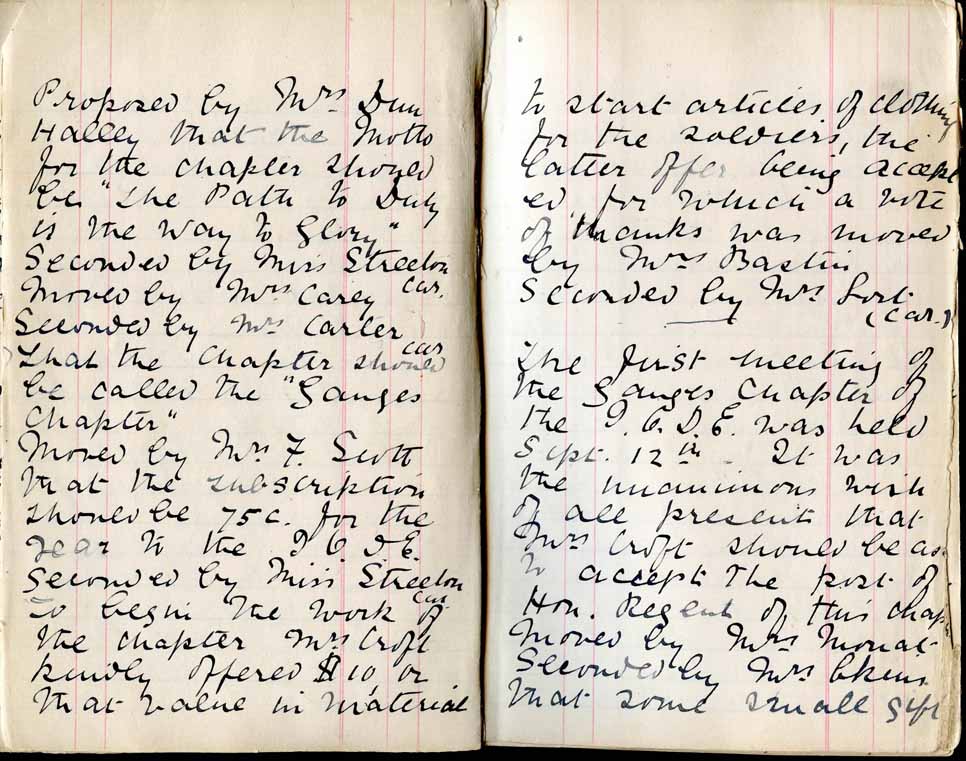 Proposed by Mrs Dun
Halley that the Motto
for the chapter should
be "The Path to Duty
is the Way to Glory"
Seconded by Miss Streeton
car.
Moved by Mrs Carey
Seconded by Mrs Carter
car
that the Chapter should
be called the "Ganges
Chapter"
Moved by Mrs F. Scott
that the subscription
should be 75c. for the
year to the I O D E.
Seconded by Miss Streeton
car.
To begin the work of
the chapter Mrs Croft
kindly offered $10, or
that value in material
to start articles of clothing
for the soldiers, the
latter offer being accept
ed, for which a vote
of thanks was moved
by Mrs Bastin
Seconded by Mrs
(car.)
The first meeting of
the Ganges Chapter of
the I.O.D.E. was held
Sept. 12th - It was
the unanimous wish
of all present that
Mrs Croft should be as
to accept the post of
Hon. Regent of this chap
Moved by Mrs Mouat
Seconded by Mrs
that some small gift